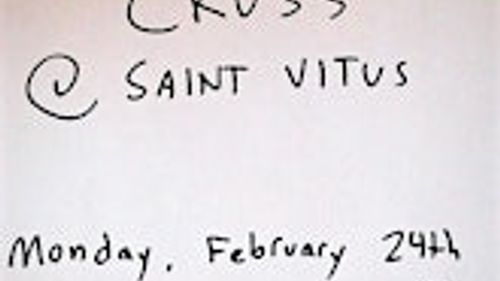 @ SAINT VITUS
Monday, February 24th